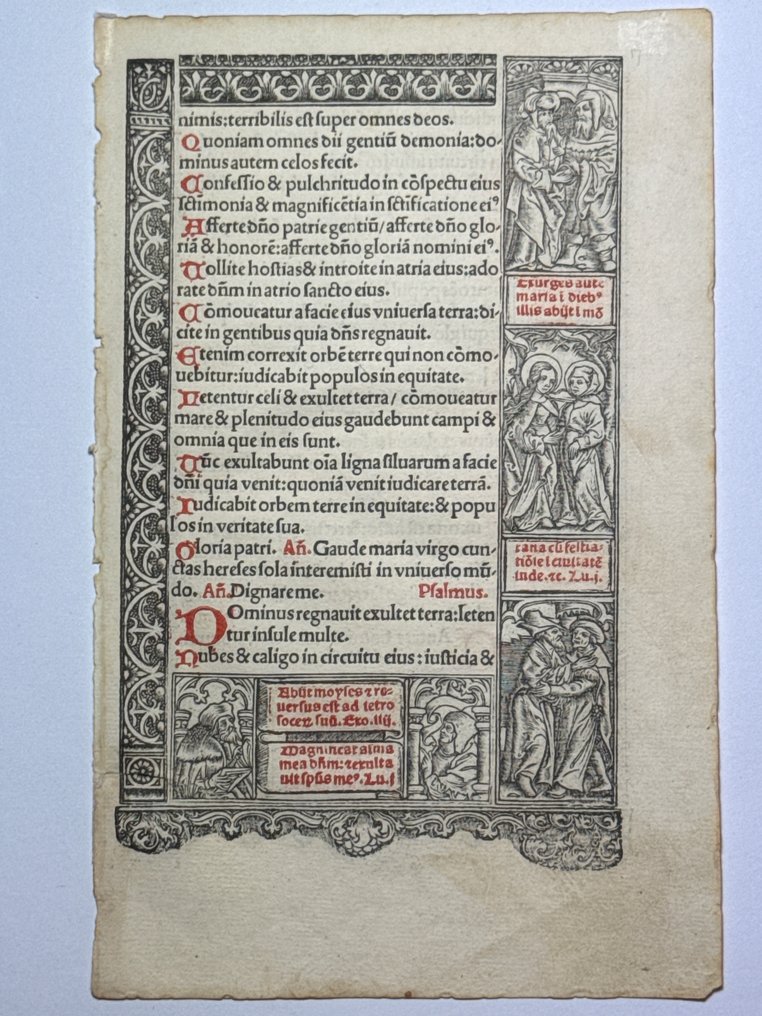 nimis:terribilis est super omnes deos.
Quoniam omnes dii gentiū demonia:do-
minus autem celos fecit.
Confessio & pulchritudo in cōspectu eius
sctimonia & magnificētia in sctificatione eiꝰ
Afferte dño patrie gentiū/afferte dño glo-
riā & honorē:afferte dño gloriā nomini eiꝰ.
Tollite hostias& introite in atria eius:ado
rate dñm in atrio sancto eius.
Cōmoueatur a facie eius vniuersa terra:di-
cite in gentibus quia dñs regnauit.
Etenim correxit orbē terre qui non cōmo-
uebitur:iudicabit populos in equitate.
Letentur celi & exultet terra/ cōmoueatur
mare & plenitudo eius gaudebunt campi &
omnia que in eis sunt.
Tūc exultabunt oīa ligna siluarum a facie
dñi quia venit:quoniā venit iudicare terrā.
Iudicabit orbem terre in equitate:& popu
los in veritate sua.
Gloria patri. Añ. Gaude maria virgo cun-
ctas hereses sola interemisti in vniuerso mū-
do. Añ. Dignare me. Psalmus.
Dominus regnauit exultet terra:leten
tur insule multe.
Nubes & caligo in circuitu eius : iusticia &
Exurges autē
maria ī diebꝰ
illis abijt ī mō
tana cū festia-
tiōe ī ciuitatē
iude. ⁊c. Lu. j.
Abijt moyses ⁊ re-
uersus est ad ietro
socerū suū. Exo. iiij.
Magnificat aīma
mea dñm: ⁊ exulta
uit spūs meꝰ. Lu. j